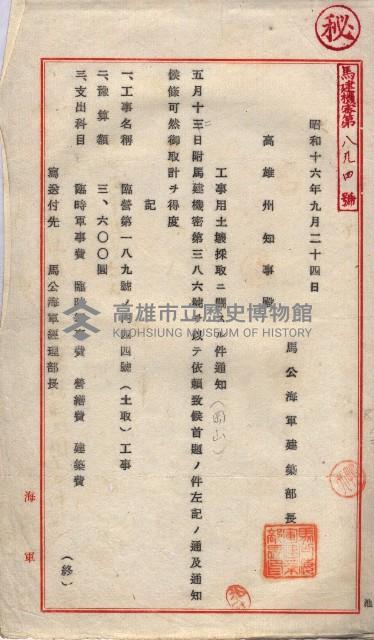 秘
馬建機密第八九四號
昭和十六年九月二十四日
馬公海軍建築部長
高雄州知事殿
工事用土壤採取ニ關スル件通知
(岡山)
五月十三日附馬建機密第三八六號ヲ以テ依賴致候首題ノ件左記ノ通及通知
候條可然御取計ヲ得度
記
一、工事名稱 臨營第一八九號ノ四四號(土取)工事
二、豫算額 三、六〇〇圓
三、支出科目 臨時軍事費 臨時軍事費 營繕費 建築費
寫送付先 馬公海軍經理部長
(終)
海軍
高雄市立歷史博物館
KAOHSIUNG MUSEUM OF HISTORY